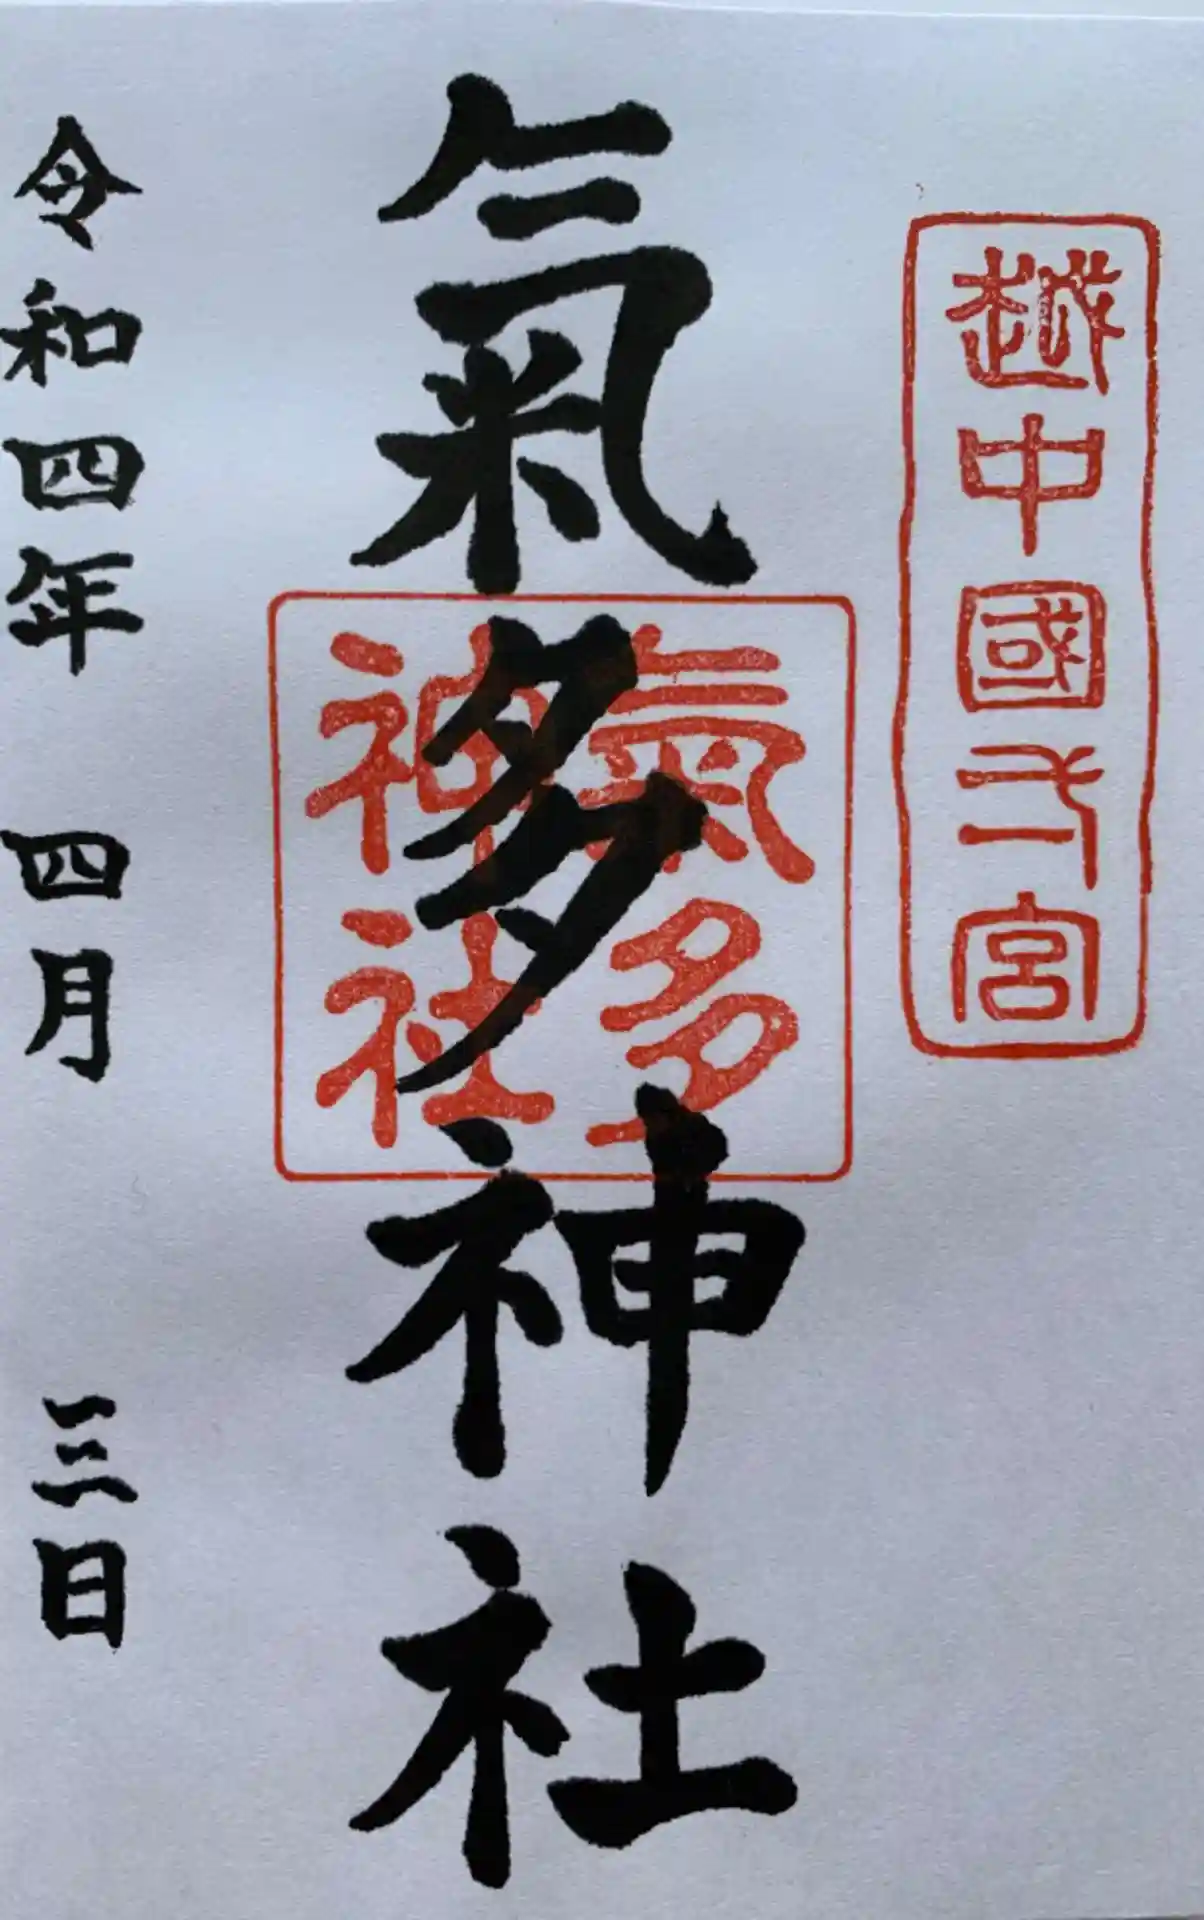 越中國弌宮
氣多神社
氣多
神社
令和四年 四月 三日